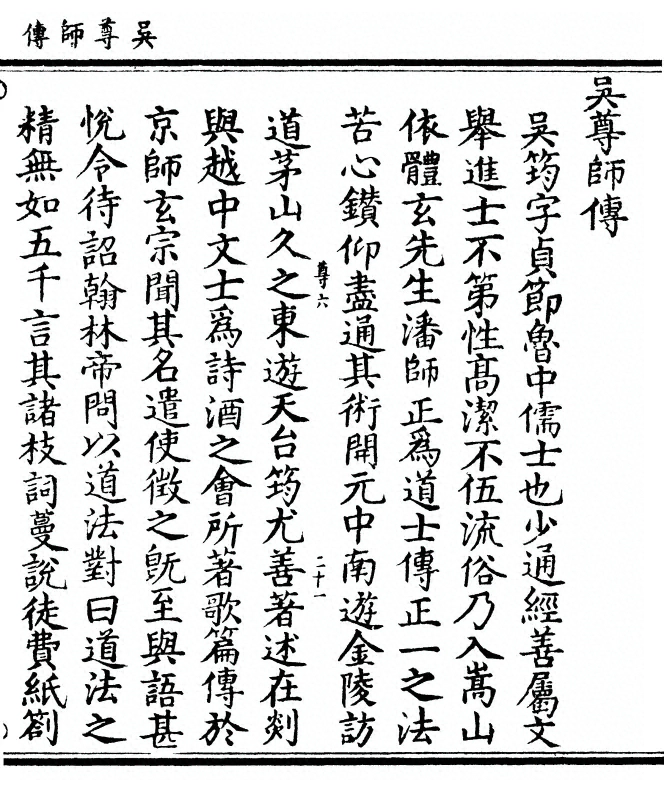 吳尊師傳
吳尊師傳
吳筠字貞節魯中儒士也少通經善屬文
舉進士不第性高潔不伍流俗乃入嵩山
依體玄先生潘師正爲道士傳正一之法
苦心鑽仰盡通其術開元中南遊金陵訪
尊六
二十一
道茅山久之東遊天台筠尤善著述在剡
與越中文士爲詩酒之會所著歌篇傳於
京師玄宗聞其名遣使徵之旣至與語甚
悅令待詔翰林帝問以道法對曰道法之
精無如五千言其諸枝詞蔓說徒費紙劄